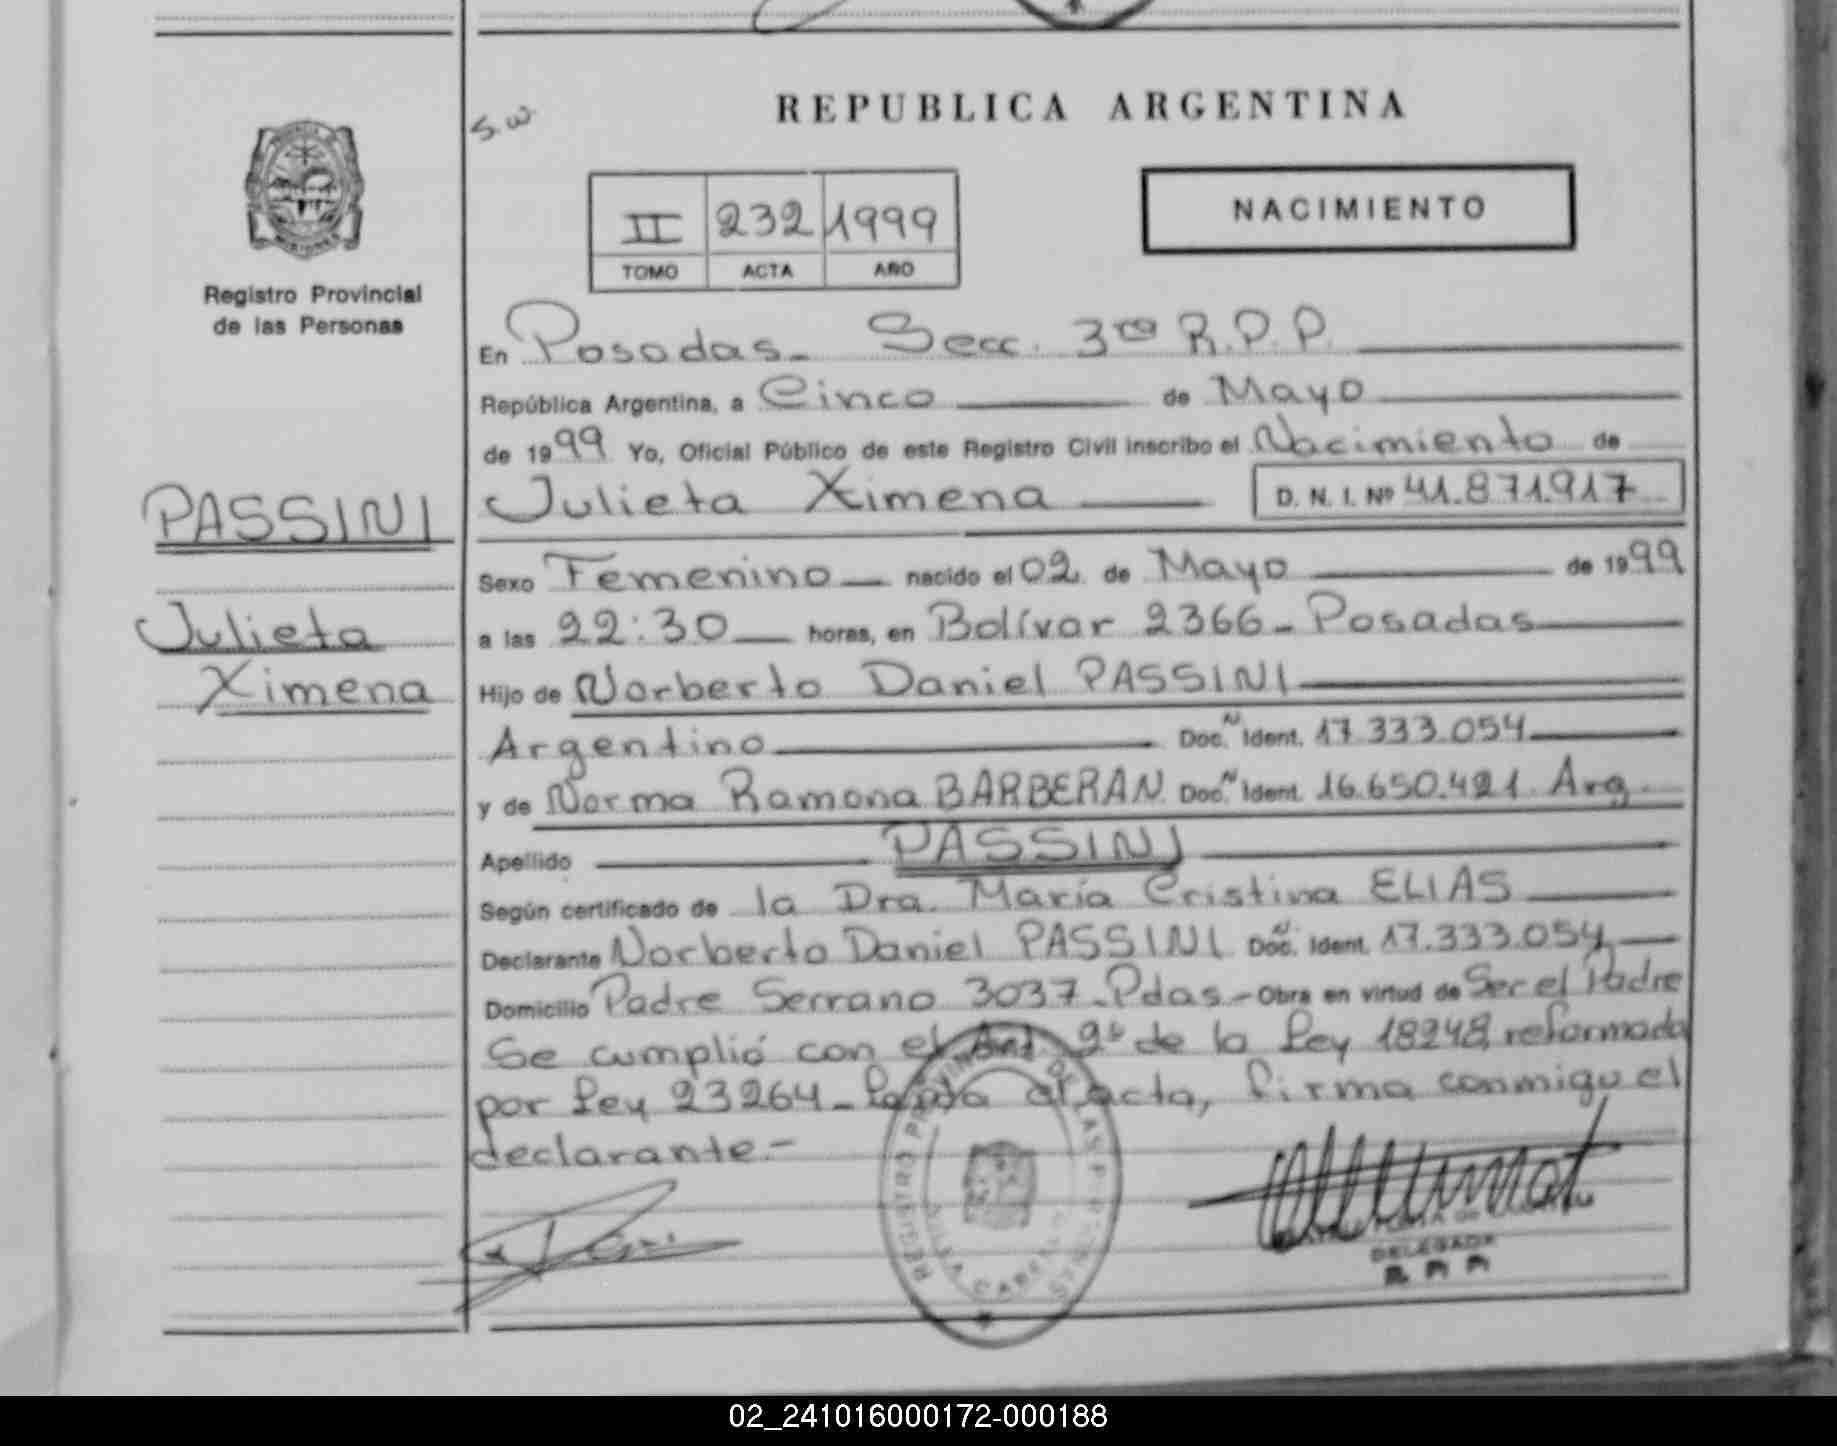 REPUBLICA ARGENTINA
S.W.
NACIMIENTO
II 232 1999
TOMO ACTA AÑO
Registro Provincial
de las Personas
En Posadas - Secc. 3ra R.P.P.
República Argentina, a Cinco de Mayo
de 1999 Yo, Oficial Público de este Registro Civil inscribo el Nacimiento de
Julieta Ximena D. N. I. Nº 41.871.917
PASSINI
Julieta
Ximena
Sexo Femenino nacido el 02 de Mayo de 1999
a las 22:30 horas, en Bolívar 2366 - Posadas
Hijo de Norberto Daniel PASSINI
Argentino Doc. N Ident. 17.333.054
y de Norma Ramona BARBERAN Doc. N Ident. 16.650.421 Arg.
Apellido PASSINI
Según certificado de la Dra. María Cristina ELIAS
Declarante Norberto Daniel PASSINI Doc. N Ident. 17.333.054
Domicilio Padre Serrano 3037 - Pdas - Obra en virtud de Ser el Padre
Se cumplió con el Art. 2º de la Ley 18248 reformada
por Ley 23264 - el acta, firma conmigo el
declarante.-
REGISTRO PROVINCIAL DE LAS PERSONAS
DELEGADA
02_241016000172-000188